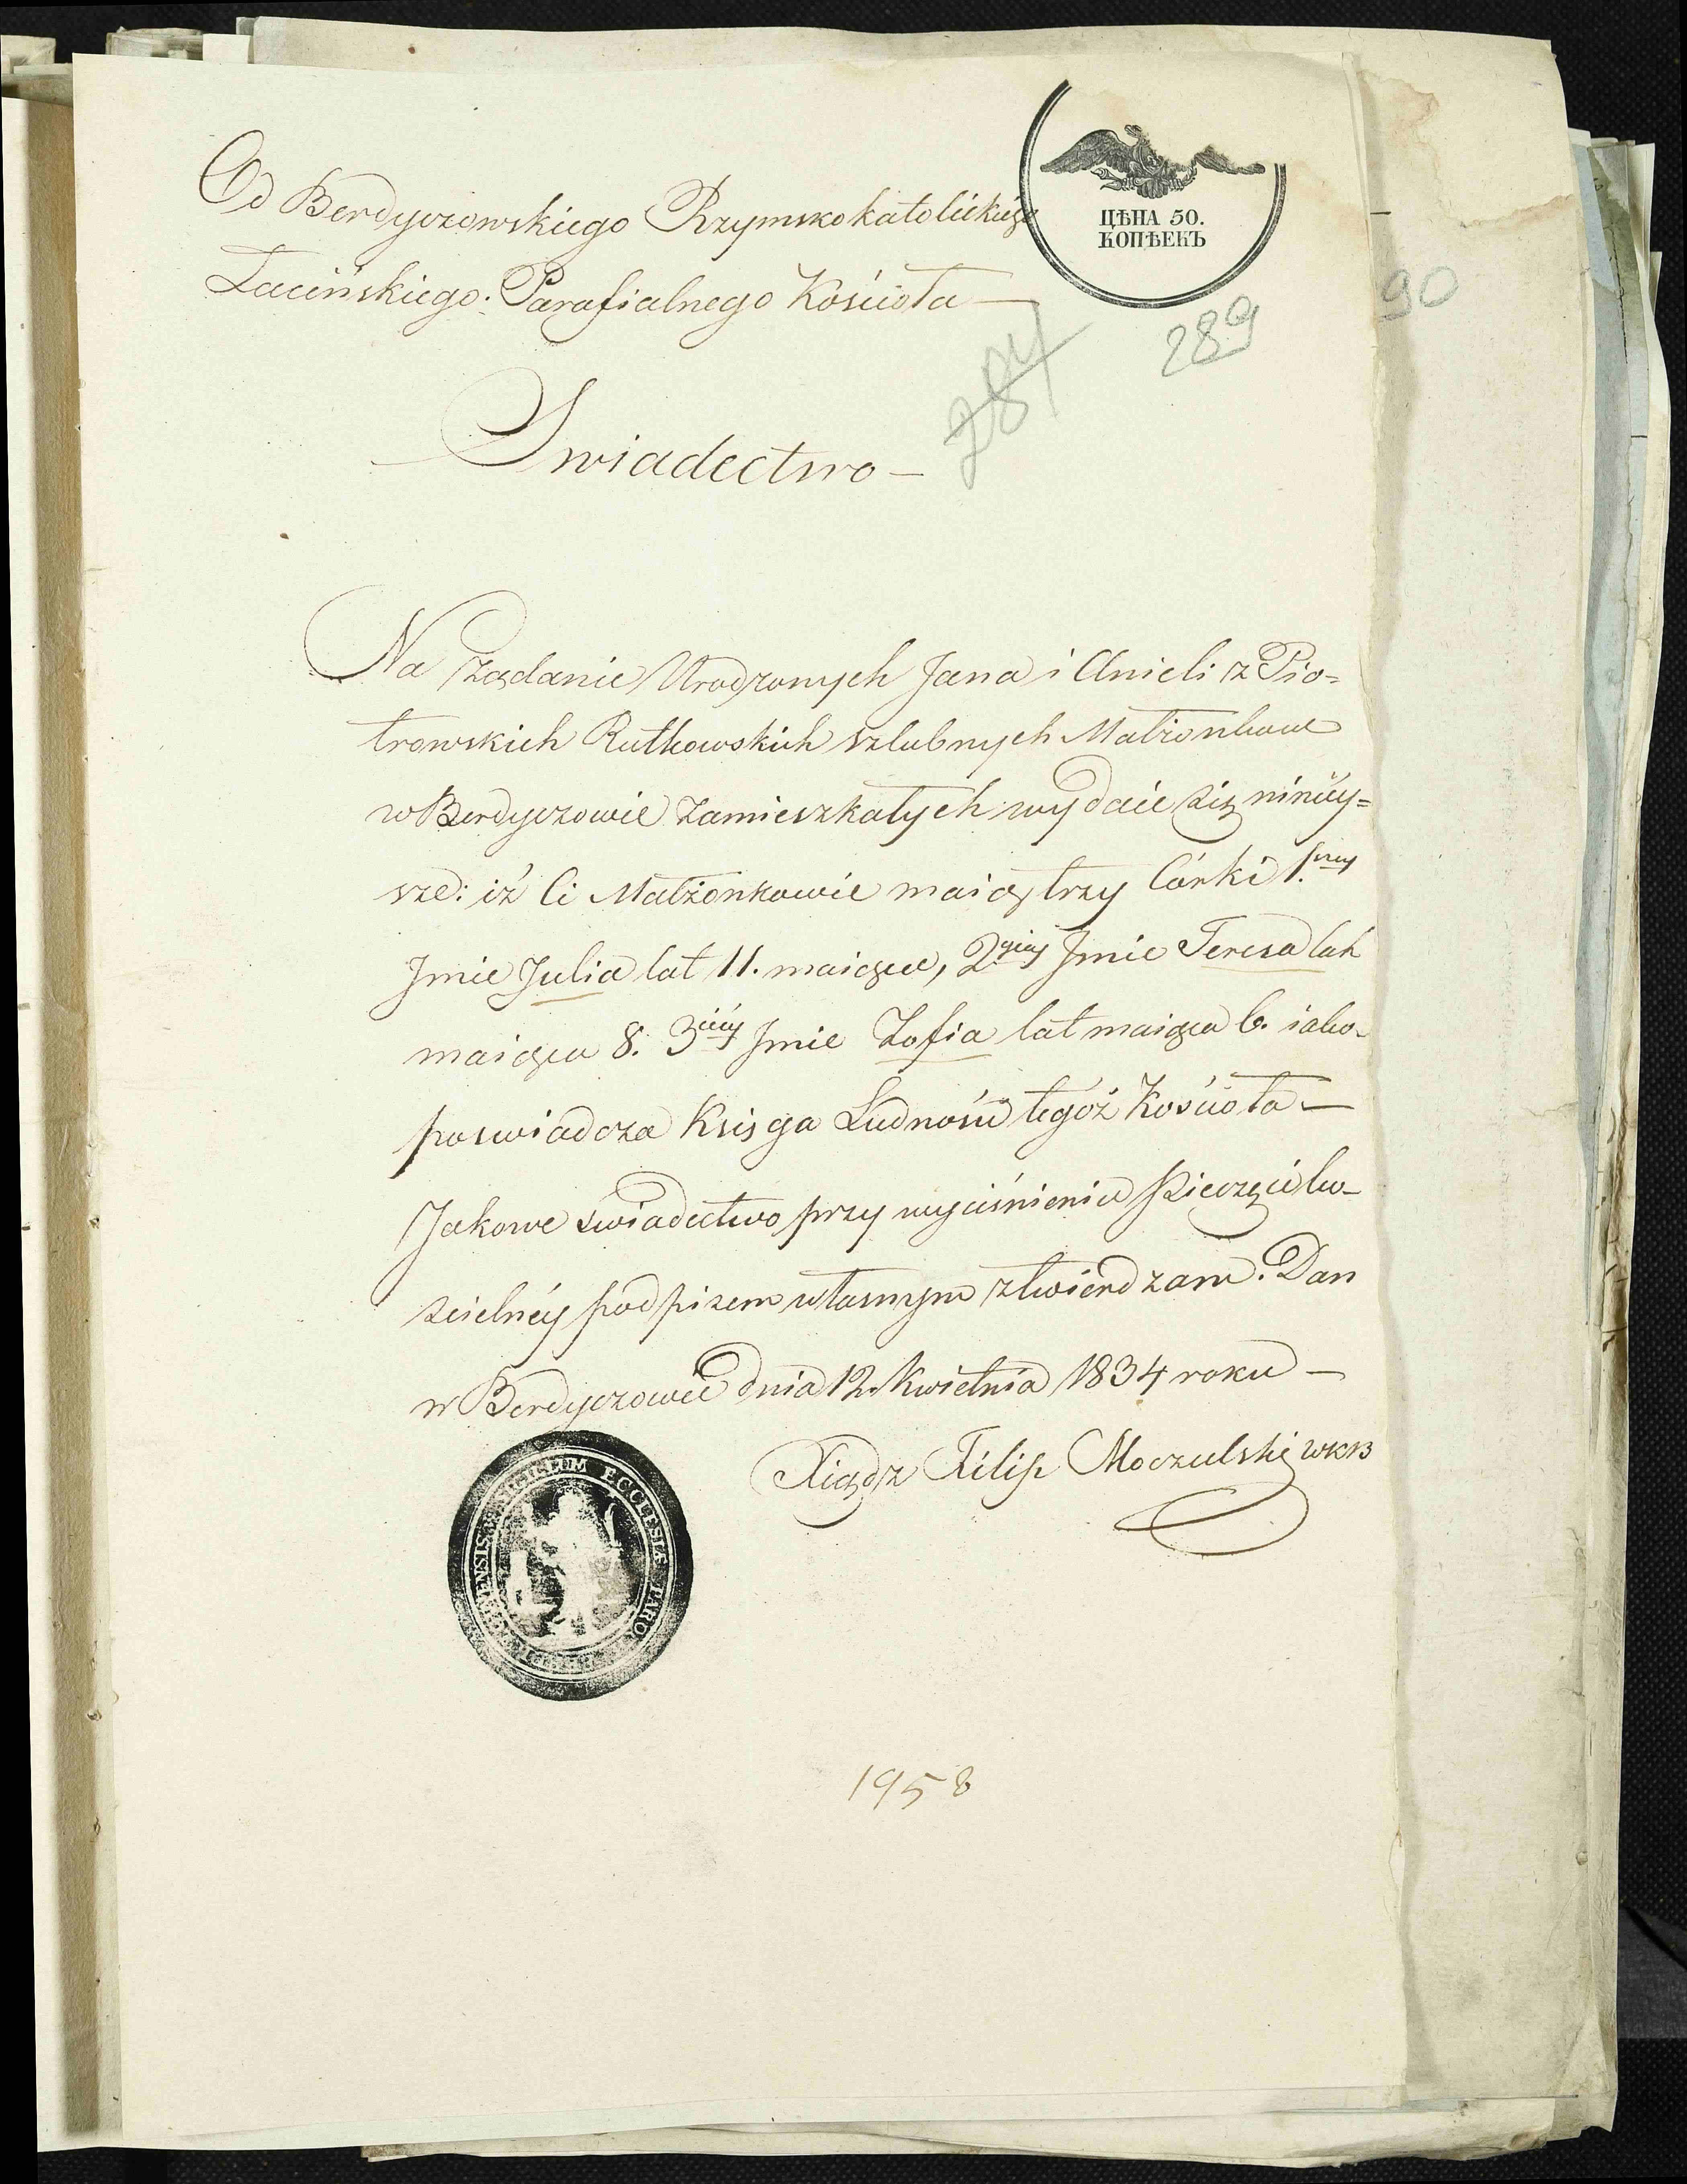 Od Berdyczowskiego Rzymsko katolickiego
Łacińskiego Parafialnego Kościoła —
ЦѢНА 50.
КОПѢЕКЪ
90
289
284
Swiadectwo —
Na żądanie Urodzonych Jana i Anieli z Pio=
trowskich Rutkowskich szlubnych Małżonkow
w Berdyczowie zamieszkałych wydaie się niniey=
sze: iż Ci Małżonkowie maią trzy Córki 1.
Jmie Julia lat 11. maiąca, 2 Jmie Teresa lat
maiąca 8. 3 Jmie Zofia lat maiąca 6. iako
poswiadcza Księga Ludności tegóż Kościoła —
Jakowe świadectwo przy wyciśnieniu Pieczęci ko-
scielnéy podpisem własnym ztwierdzam. Dan
w Berdyczowie dnia 12. Kwietnia 1834 roku —
Xiądz Filip Moczulski WKB
SIGILLUM ECCLESIÆ PARO
1958